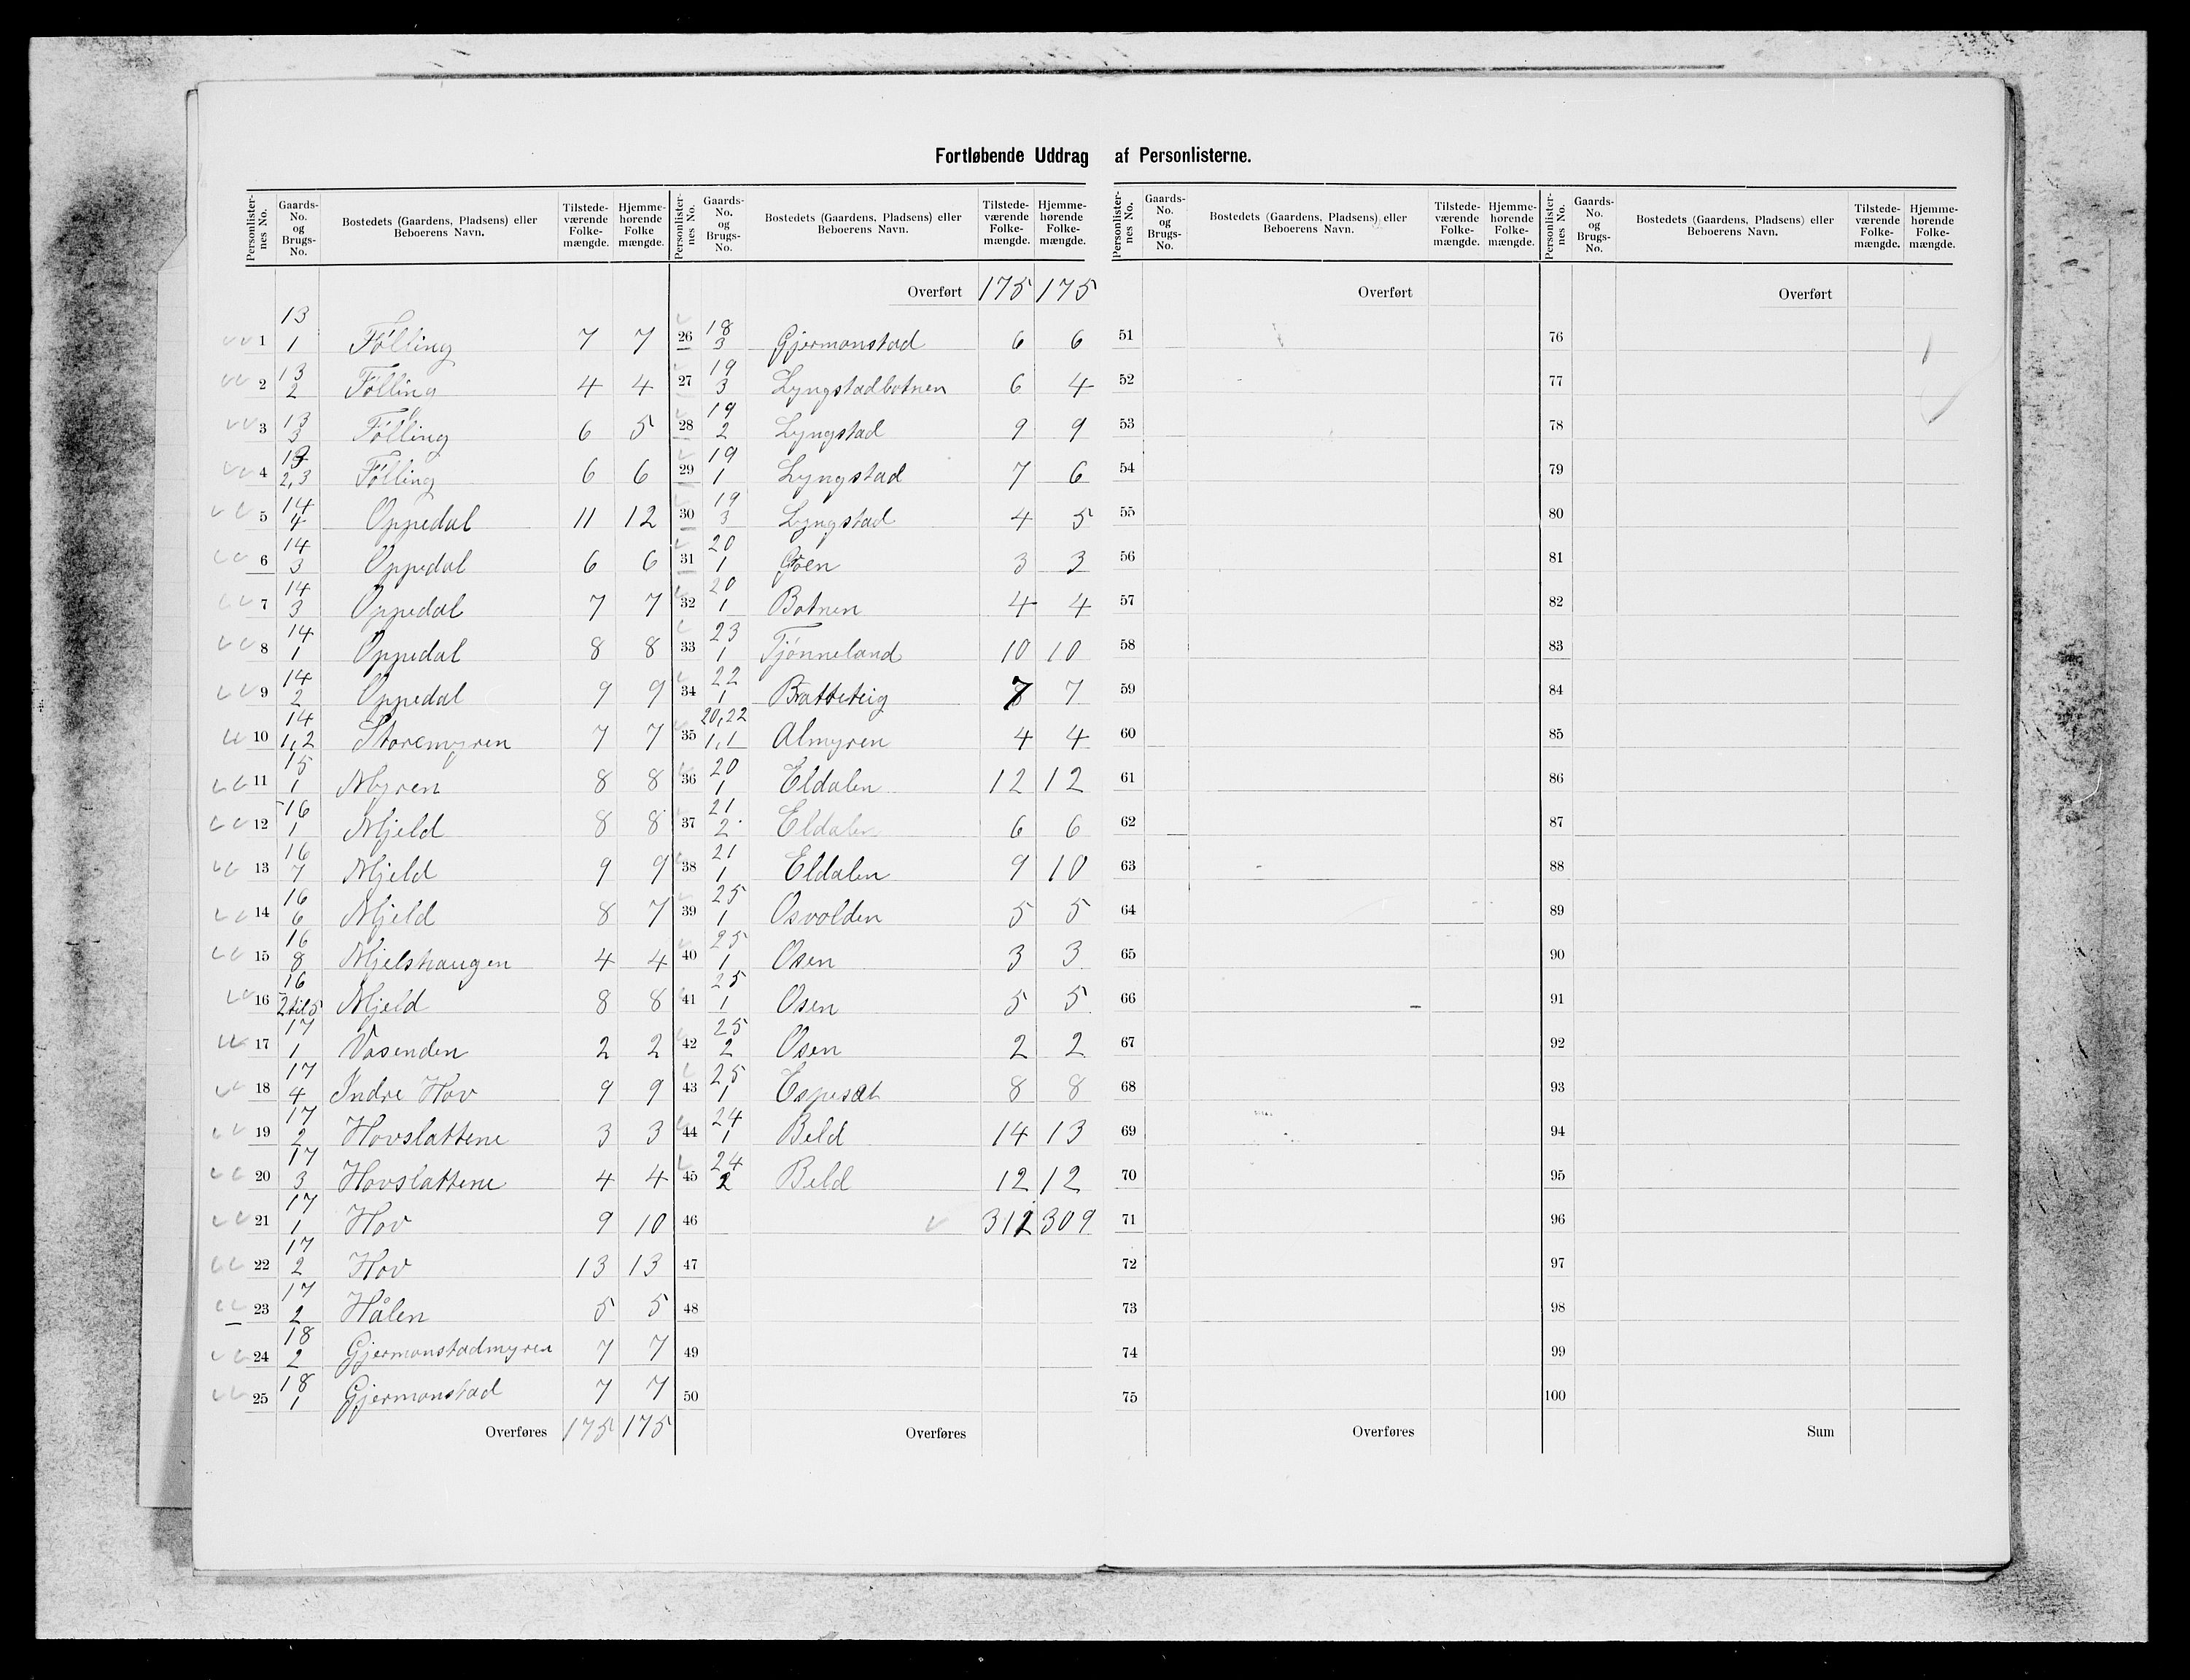 Fortløbende Uddrag af Personlisterne.
Personlisternes No. Gaards-No. og Brugs-No. Bostedets (Gaardens, Pladsens) eller Beboerens Navn. Tilstedeværende Folkemængde. Hjemmehørende Folkemængde.
1 13 1 Følling 7 7
2 13 2 Følling 4 4
3 13 3 Følling 6 5
4 13 2,3 Følling 6 6
5 14 4 Oppedal 11 12
6 14 3 Oppedal 6 6
7 14 3 Oppedal 7 7
8 14 1 Oppedal 8 8
9 14 2 Oppedal 9 9
10 14 1,2 Storemyren 7 7
11 15 1 Myren 8 8
12 16 1 Mjeld 8 8
13 16 7 Mjeld 9 9
14 16 6 Mjeld 8 7
15 16 8 Mjelshaugen 4 4
16 16 2til5 Mjeld 8 8
17 17 1 Vasenden 2 2
18 17 4 Indre Hov 9 9
19 17 2 Hovslattene 3 3
20 17 3 Hovslattene 4 4
21 17 1 Hov 9 10
22 17 2 Hov 13 13
23 17 2 Hålen 5 5
24 18 2 Gjermonstadmyren 7 7
25 18 1 Gjermonstad 7 7
Overføres 175 175
Personlisternes No. Gaards-No. og Brugs-No. Bostedets (Gaardens, Pladsens) eller Beboerens Navn. Tilstedeværende Folkemængde. Hjemmehørende Folkemængde.
Overført 175 175
26 18 3 Gjermonstad 6 6
27 19 3 Lyngstadbotnen 6 4
28 19 2 Lyngstad 9 9
29 19 1 Lyngstad 7 6
30 19 3 Lyngstad 4 5
31 20 1 3 3
32 20 1 Botnen 4 4
33 23 1 Tjønneland 10 10
34 22 1 Bratteteig 7 7
35 20,22 1,1 Almyren 4 4
36 20 1 Eldalen 12 12
37 21 2 Eldalen 6 6
38 21 1 Eldalen 9 10
39 25 1 Osvolden 5 5
40 25 1 Osen 3 3
41 25 1 Osen 5 5
42 25 2 Osen 2 2
43 25 1 Espesæt 8 8
44 24 1 Beld 14 13
45 24 2 Beld 12 12
46 312 309
47
48
49
50
Overføres
Personlisternes No. Gaards-No. og Brugs-No. Bostedets (Gaardens, Pladsens) eller Beboerens Navn. Tilstedeværende Folkemængde. Hjemmehørende Folkemængde.
Overført
51
52
53
54
55
56
57
58
59
60
61
62
63
64
65
66
67
68
69
70
71
72
73
74
75
Overføres
Personlisternes No. Gaards-No. og Brugs-No. Bostedets (Gaardens, Pladsens) eller Beboerens Navn. Tilstedeværende Folkemængde. Hjemmehørende Folkemængde.
Overført
76
77
78
79
80
81
82
83
84
85
86
87
88
89
90
91
92
93
94
95
96
97
98
99
100
Sum